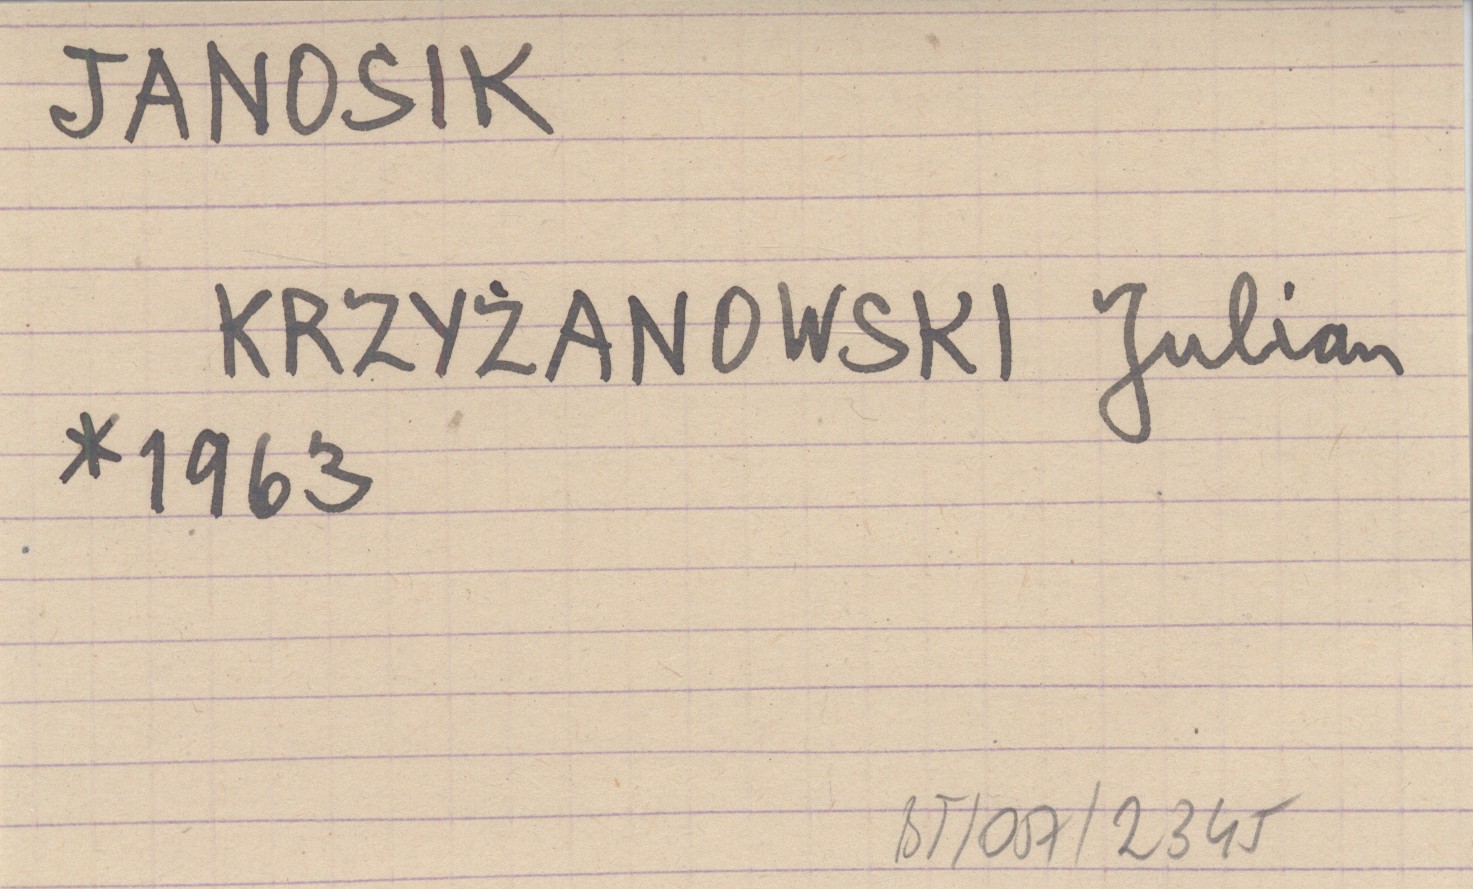 JANOSIK
KRZYŻANOWSKI Julian
*1963
BT/057/2345